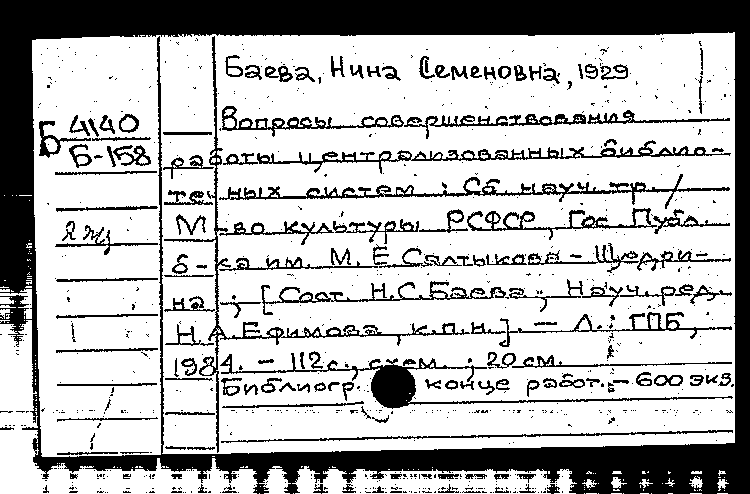 Баева, Нина Семеновна, 1929
Б 4140
Б-158
Вопросы совершенствования
работы централизованных библио-
течных систем : Сб. науч. тр. /
М-во культуры РСФСР, Гос. Публ.
б-ка им. М. Е Салтыкова - Щедри-
на ; [Сост. Н.С. Баева ; Науч. ред.
Н.А. Ефимова, к.п.н.]. — Л. : ГПБ,
1984. - 112 с., схем. ; 20 см.
Библиогр. конце работ. - 600 экз.